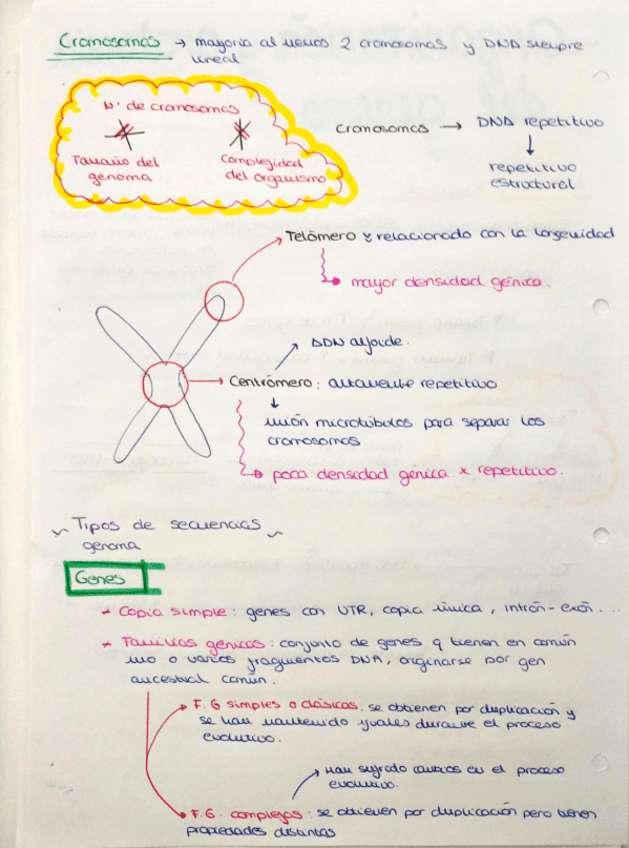 Cromosomas → mayoría al menos 2 cromosomas y DNA siempre
lineal
Nº de cromosomas
Tamaño del
genoma
Complejidad
del organismo
Cromosomas → DNA repetitivo
↓
repetitivo
estructural
Telómero y relacionado con la longevidad
mayor densidad génica.
ADN alfoide.
Centrómero: altamente repetitivo
↓
unión microtúbulos para separar los
cromosomas
poca densidad génica x repetitivo.
Tipos de secuencias
genoma
Genes
Copia simple: genes con UTR, copia única, intrón-exón...
Familias génicas: conjunto de genes q tienen en común
uno o varios fragmentos DNA, originarse por gen
ancestral común.
F.G simples o clásicas: se obtienen por duplicación y
se han mantenido iguales durante el proceso
evolutivo.
Han sufrido cambios en el proceso
evolutivo.
F.G. complejas: se obtienen por duplicación pero tienen
propiedades distintas